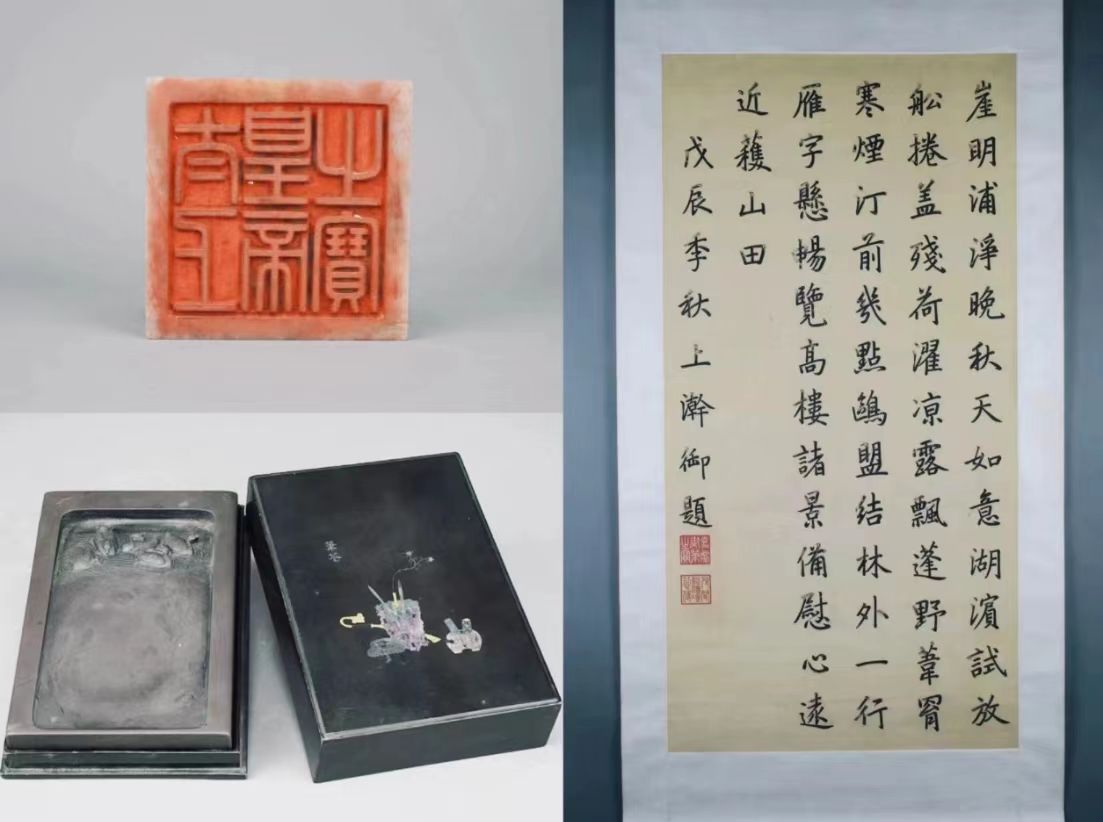 太上
皇帝
之寶
崖明浦淨晚秋天如意湖濱試放
舩捲盖殘荷濯凉露飄蓬野葦罥
寒煙汀前幾點鷗盟結林外一行
雁字懸暢覽高樓諸景備慰心遠
近穫山田
戊辰季秋上澣御題